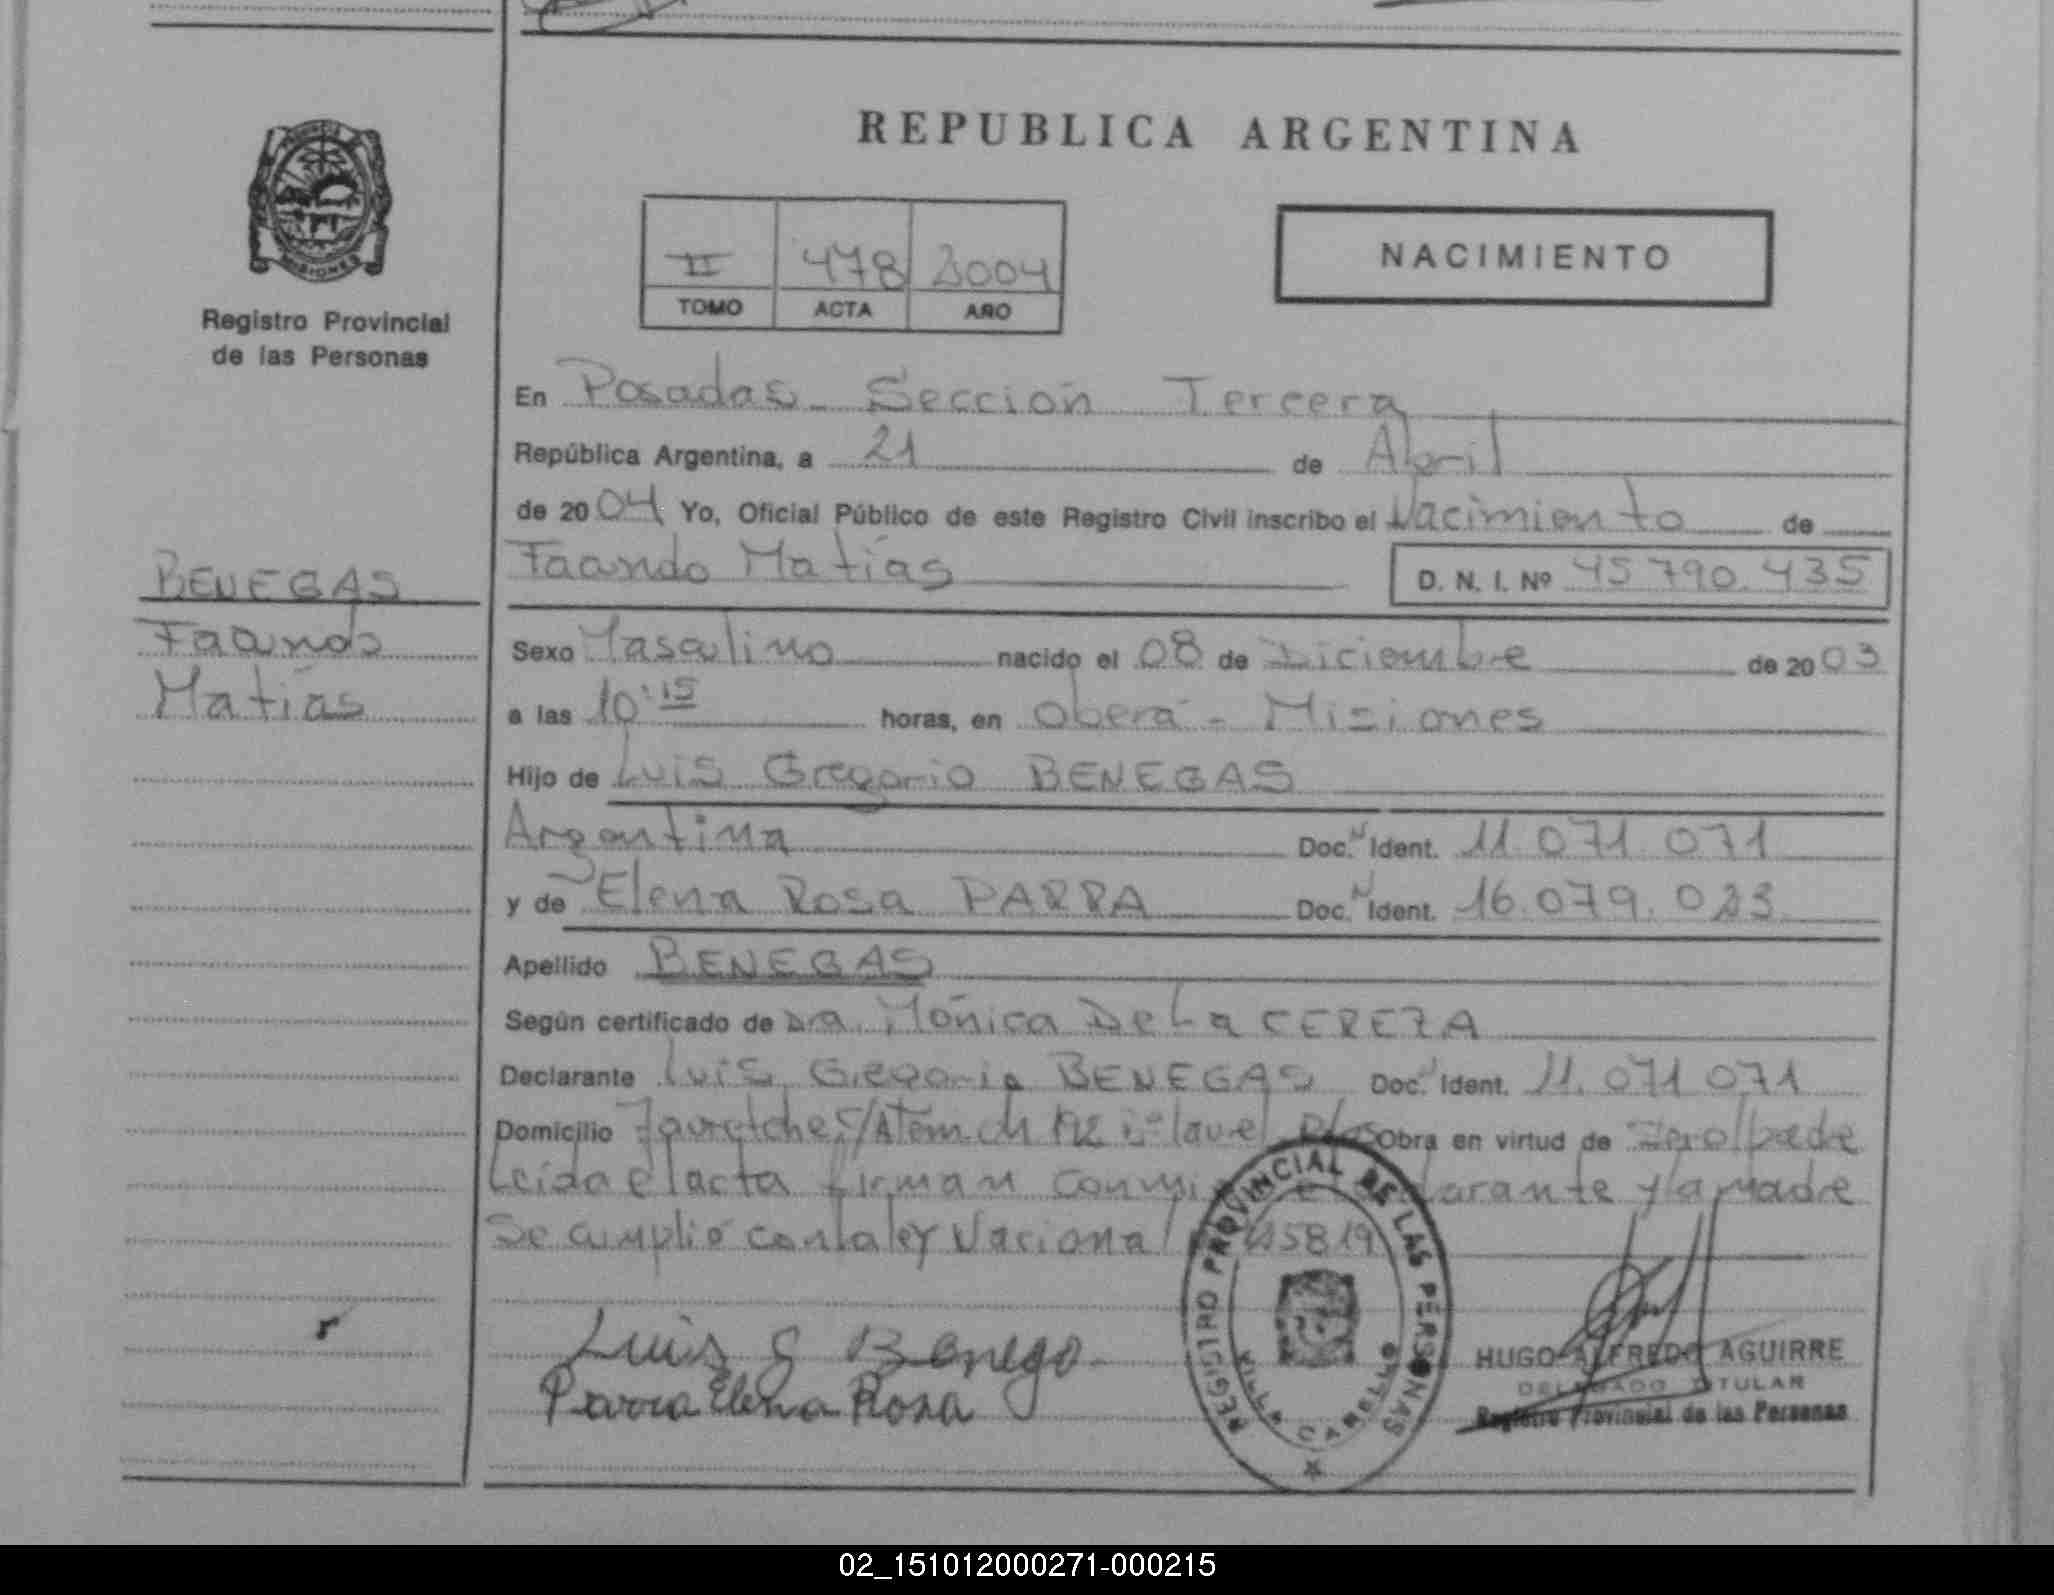 REPUBLICA ARGENTINA
MISIONES
Registro Provincial
de las Personas
II 478 2004
TOMO ACTA AÑO
NACIMIENTO
BENEGAS
Facundo
Matías
En Posadas - Sección Tercera
República Argentina, a 21 de Abril
de 2004 Yo, Oficial Público de este Registro Civil inscribo el Nacimiento de
Facundo Matías D. N. I. Nº 45 790. 435
Sexo Masculino nacido el 08 de Diciembre de 2003
a las 10:15 horas, en Oberá - Misiones
Hijo de Luis Gregorio BENEGAS
Argentina Doc. N Ident. 11.071.071
y de Elena Rosa PARRA Doc. N Ident. 16.079.023
Apellido BENEGAS
Según certificado de Dra. Mónica De La CEREZA
Declarante Luis Gregorio BENEGAS Doc. Ident. 11.071.071
Domicilio Obra en virtud de Ser el padre
Leída el acta firman conmi declarante y la madre
Se cumplió con la ley Nacional
Luis G Benega
Parra Elena Rosa
REGISTRO PROVINCIAL DE LAS PERSONAS
VILLA CABELLO
HUGO ALFREDO AGUIRRE
DELEGADO TITULAR
Registro Provincial de las Personas
02_151012000271-000215